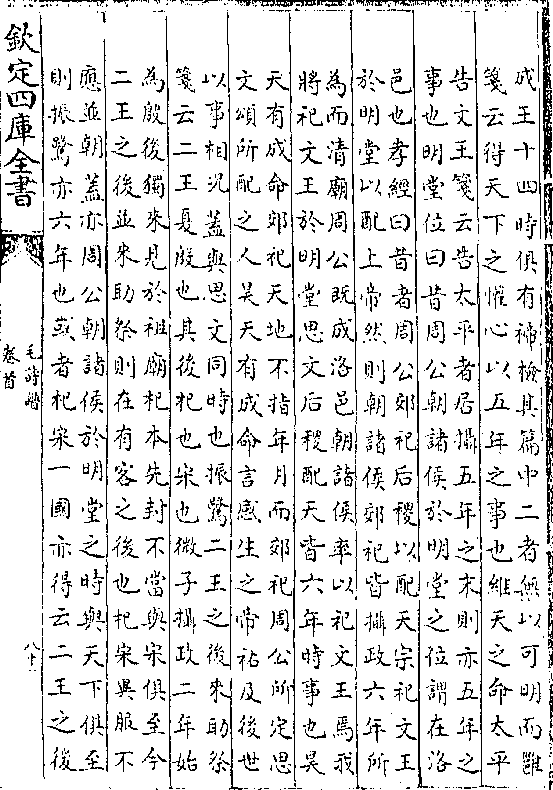 成王十四時俱有禘檢其篇中二者無以可明而雝
箋云得天下之懽心以五年之事也維天之命太平
告文王箋云告太平者居攝五年之末則亦五年之
事也明堂位曰昔周公朝諸侯於明堂之位謂在洛
邑也孝經曰昔者周公郊祀后稷以配天宗祀文王
於明堂以配上帝然則朝諸侯郊祀皆攝政六年所
為而清廟周公既成洛邑朝諸侯率以祀文王焉我
將祀文王於明堂思文后稷配天皆六年時事也昊
天有成命郊祀天地不指年月而郊祀周公所定思
文頌所配之人昊天有成命言感生之帝祐及後世
以事相況蓋與思文同時也振鷺二王之後來助祭
箋云二王夏殷也其後杞也宋也微子攝政二年始
為殷後獨來見於祖廟杞本先封不當與宋俱至今
二王之後並來助祭則在有客之後也杞宋異服不
應並朝蓋亦周公朝諸侯於明堂之時與天下俱至
則振鷺亦六年也或者杞宋一國亦得云二王之後
欽定四庫全書
毛詩譜
卷首